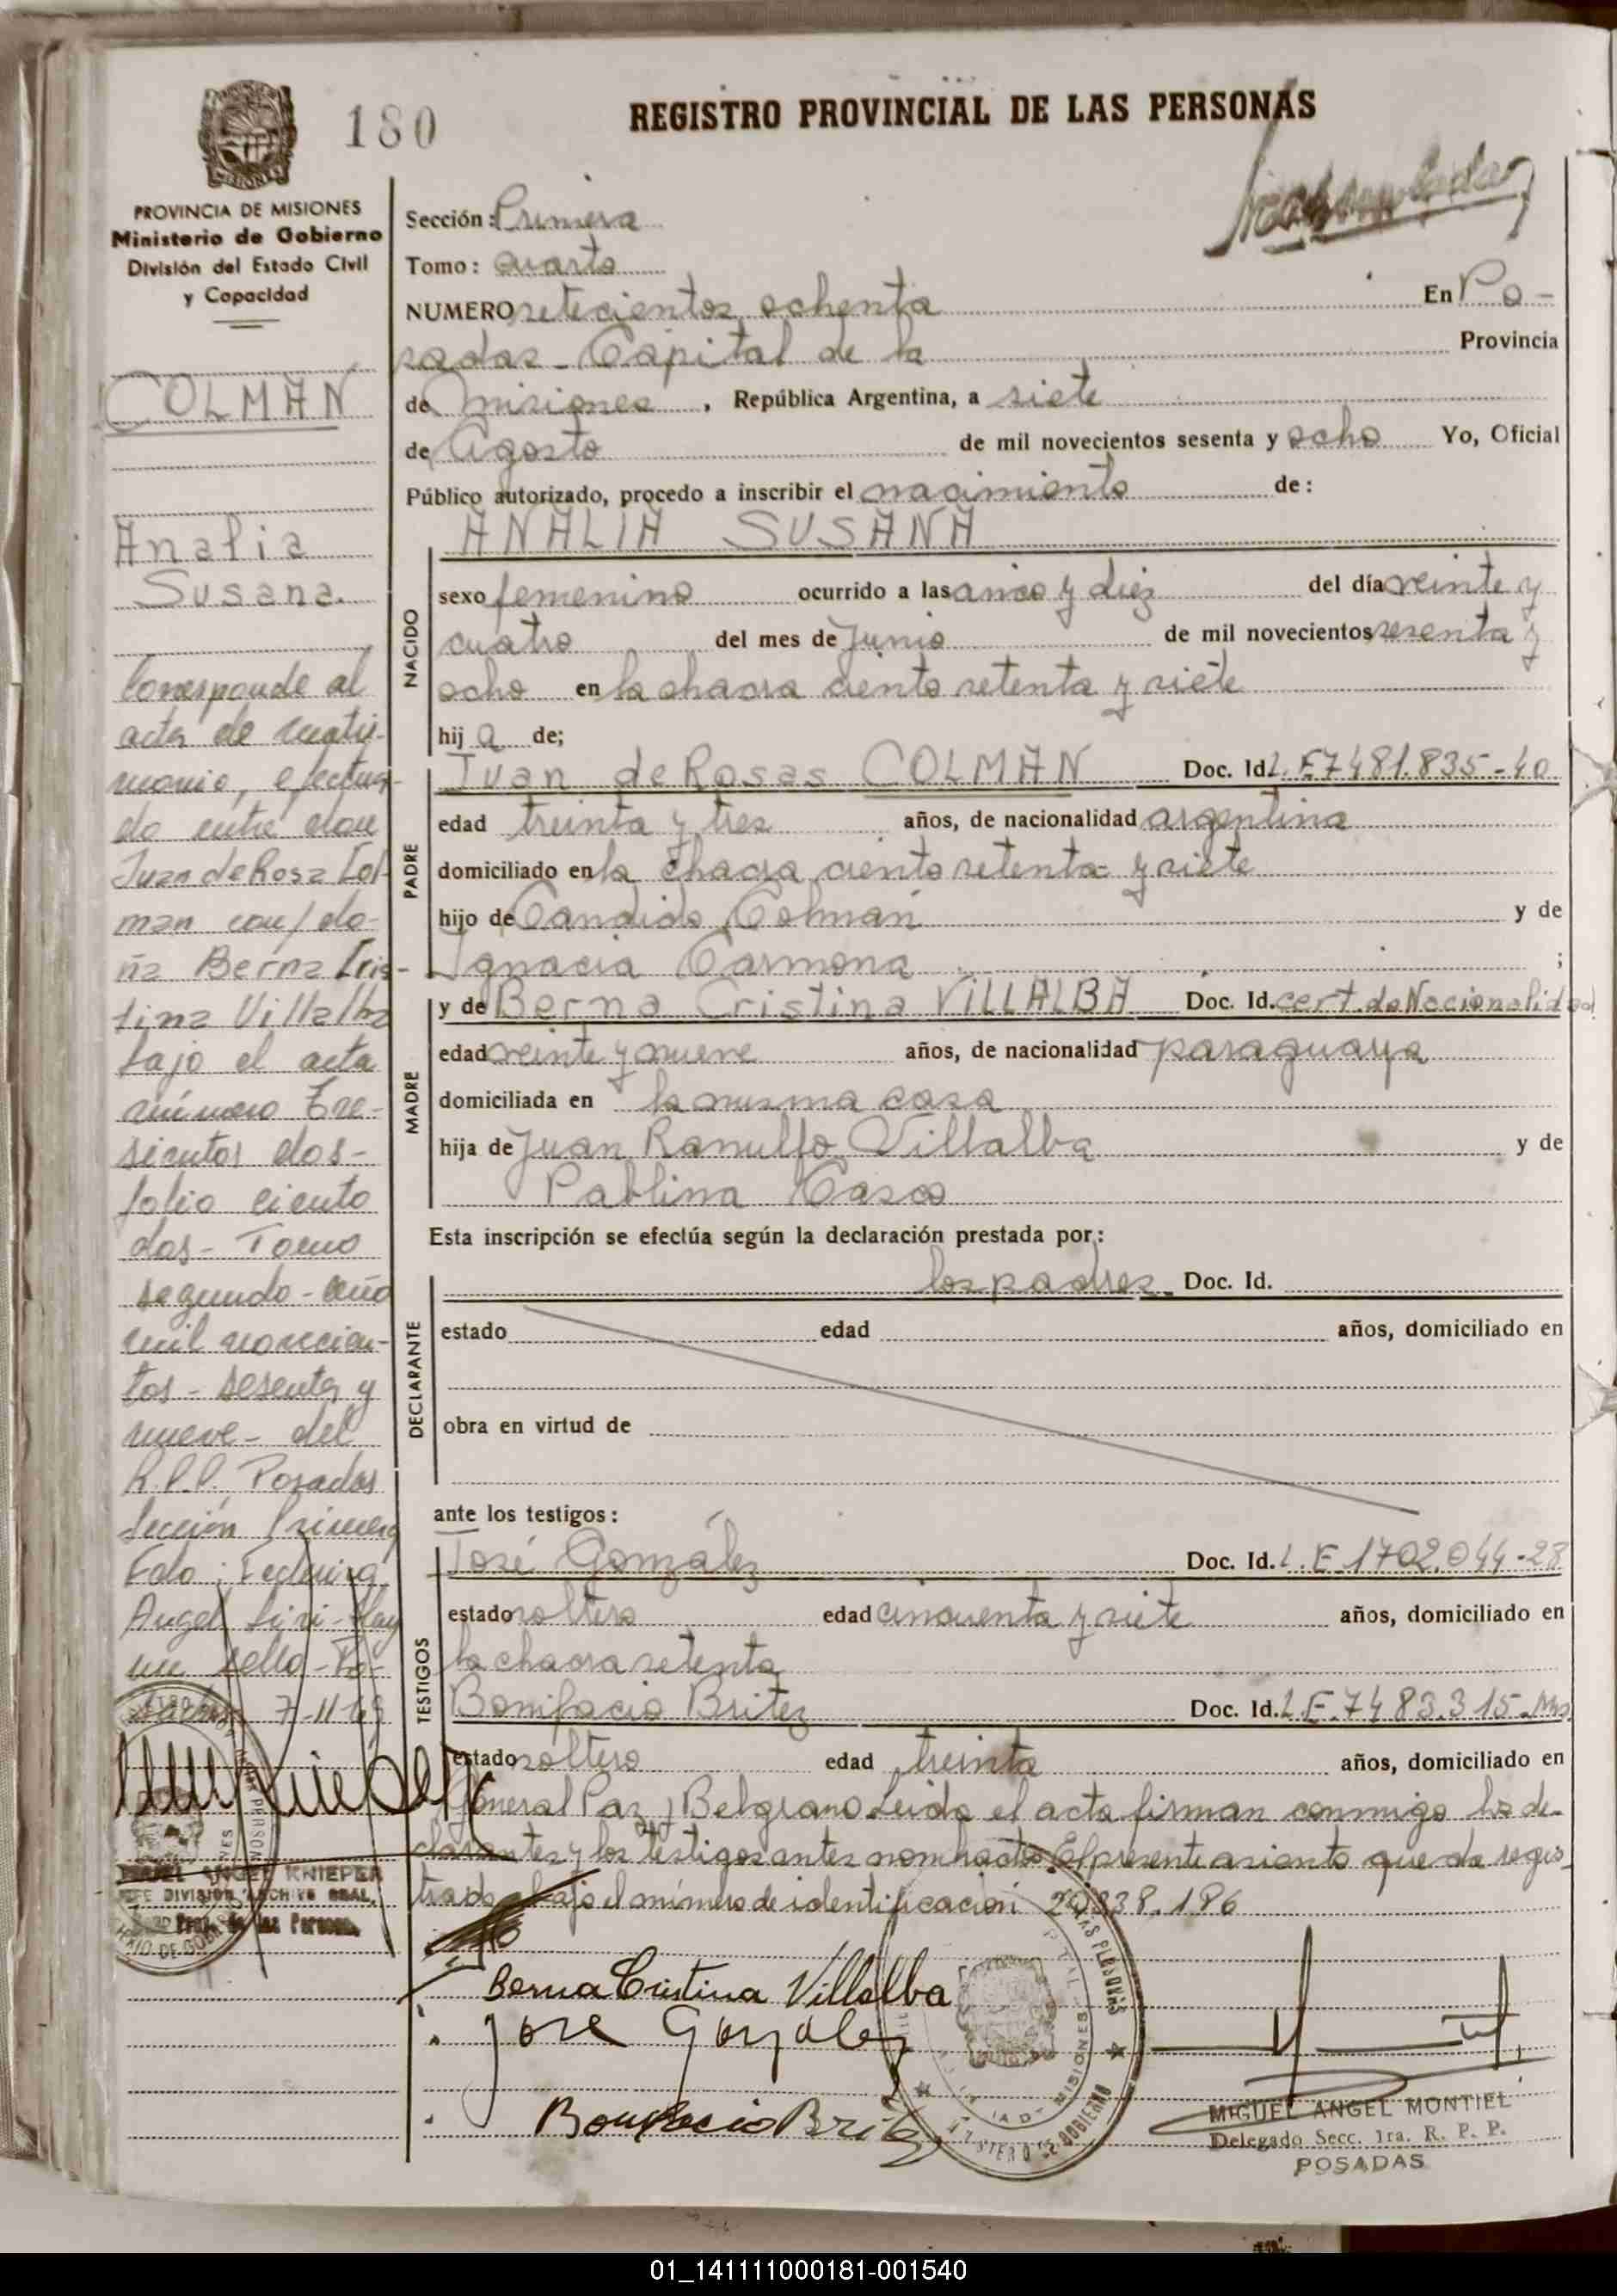 180
REGISTRO PROVINCIAL DE LAS PERSONAS
MISIONES
PROVINCIA DE MISIONES
Ministerio de Gobierno
División del Estado Civil
y Capacidad
COLMAN
Analia
Susana.
Corresponde al
acta de matri-
monio, efectua-
do entre don
Juan de Rosa Col-
man con/ do-
ña Berna Cris-
tina Villalba
bajo el acta
número Tre-
sientos dos-
folio ciento
dos- Tomo
segundo- año
mil novecien-
tos- sesenta y
nueve- del
R.P.P. Posadas
Sección Primera
Fdo: Federico
Angel Hay
un sello-Po-
sadas 7-11-69
ANGEL KNIEPER
JEFE DIVISION ARCHIVO GRAL.
Prov. de las Personas
Sección: Primera
Tomo: cuarto
NUMERO setecientos ochenta En Po-
sadas- Capital de la Provincia
de Misiones, República Argentina, a siete
de Agosto de mil novecientos sesenta y ocho Yo, Oficial
Público autorizado, procedo a inscribir el nacimiento de:
NACIDO
ANALIA SUSANA
sexo femenino ocurrido a las cinco y diez del día veinte y
cuatro del mes de Junio de mil novecientos sesenta y
ocho en la chacra ciento setenta y siete
hij a de;
PADRE
Juan de Rosas COLMAN Doc. Id. L.E 7481.835-40
edad treinta y tres años, de nacionalidad argentina
domiciliado en la chacra ciento setenta y siete
hijo de Candido Colman y de
Ignacia Carmona ;
MADRE
y de Berna Cristina VILLALBA Doc. Id. cert. de Nacionalidad
edad veinte y nueve años, de nacionalidad paraguaya
domiciliada en la misma casa
hija de Juan Ranulfo Villalba y de
Pablina Casco
Esta inscripción se efectúa según la declaración prestada por:
DECLARANTE
los padres Doc. Id.
estado edad años, domiciliado en
obra en virtud de
ante los testigos:
TESTIGOS
José González Doc. Id. L.E 1702.044-28
estado soltero edad cincuenta y siete años, domiciliado en
la chacra setenta
Bonifacio Britez Doc. Id. L.E.7483.315-Mns.
estado soltero edad treinta años, domiciliado en
General Paz y Belgrano. Leida el acta firman conmigo los de-
clarantes y los testigos antes nombrados. El presente asiento queda regis-
trado bajo el número de identificación 20.338.186
Berna Cristina Villalba
Jose Gonzalez
Bonifacio Britez
MIGUEL ANGEL MONTIEL
Delegado Secc. 1ra. R. P. P.
POSADAS
01_141111000181-001540